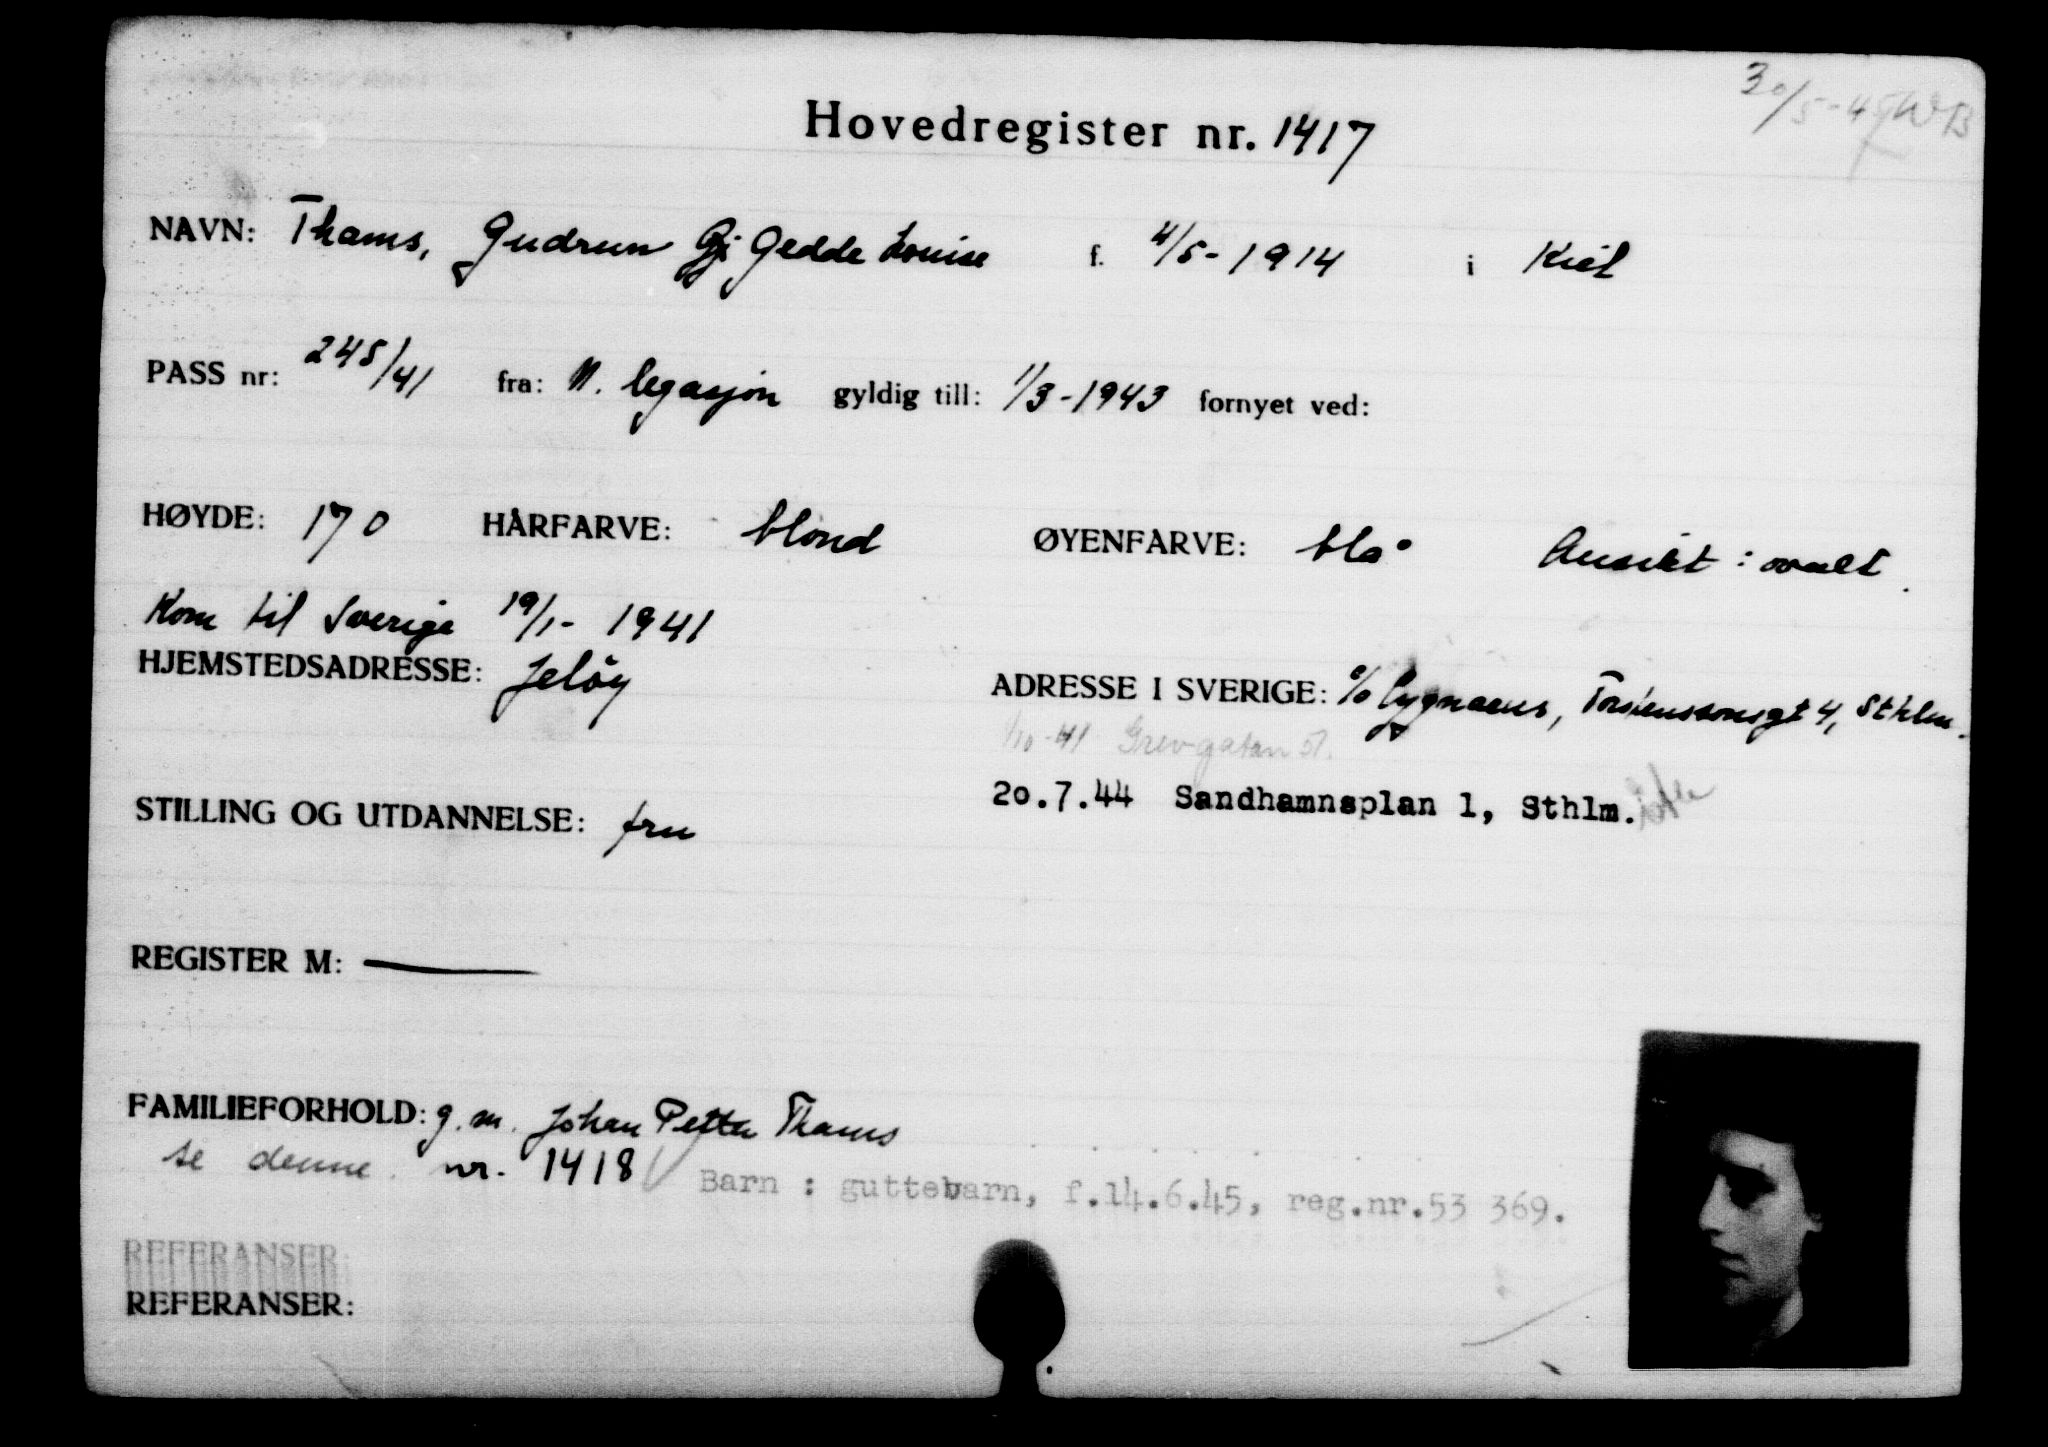 30/5-45 WB
Hovedregister nr. 1417
NAVN: Thams, Gudrun Gj. Gedde Louise f. 4/5-1914 i Kiel
PASS nr: 245/41 fra: N. legasjon gyldig till: 1/3-1943 fornyet ved:
HØYDE: 170 HÅRFARVE: blond ØYENFARVE: blå Ansikt: ovalt.
Kom til Sverige 19/1-1941
HJEMSTEDSADRESSE: Jelöy ADRESSE I SVERIGE: c/o Cygnaeus, Torstenssonsgt 4, Sthlm.
1/10-41 Grevgatan 51.
20.7.44 Sandhamnsplan 1, Sthlm.
STILLING OG UTDANNELSE: fru
REGISTER M: —
FAMILIEFORHOLD: g.m. Johan Petter Thams
se denne nr. 1418 Barn : guttebarn, f.14.6.45, reg.nr.53 369.
REFERANSER
REFERANSER: